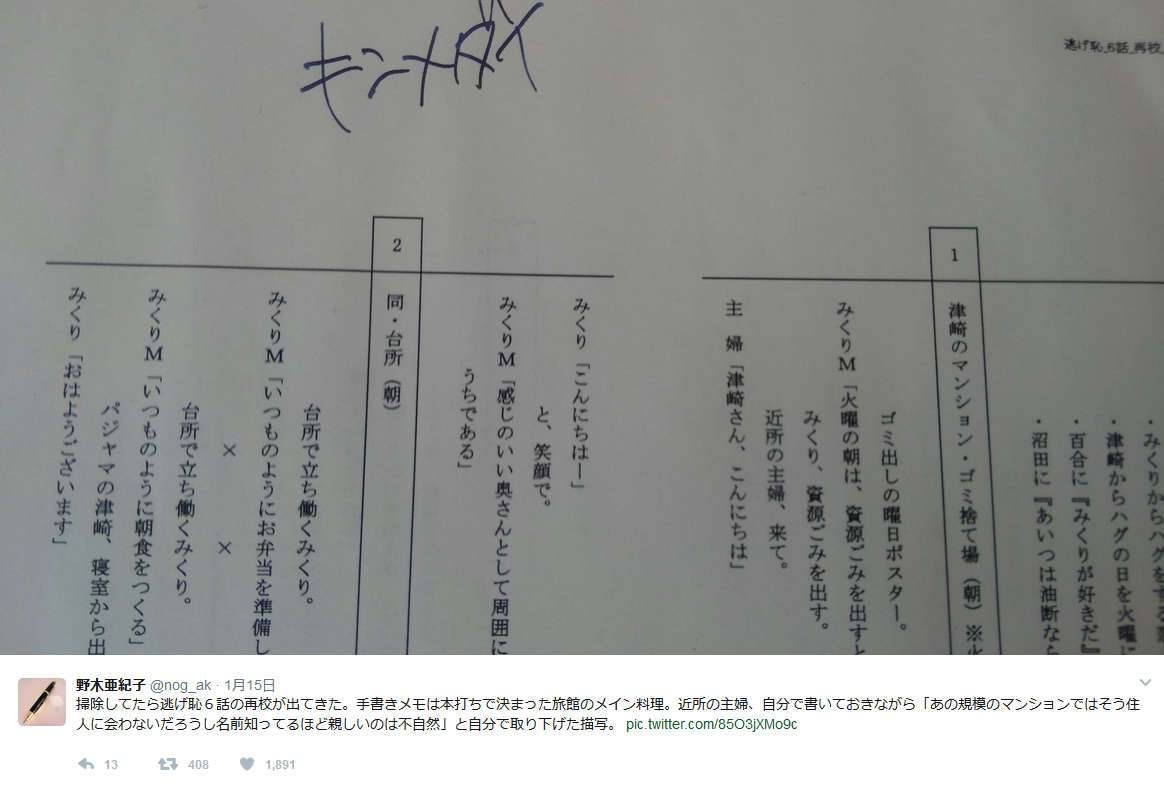 キンメダイ
逃げ恥_6話_再校
・みくりからハグをする
・津崎からハグの日を火曜に
・百合に『みくりが好きだ』
・沼田に『あいつは油断なら
1 津崎のマンション・ゴミ捨て場（朝）※火
ゴミ出しの曜日ポスター。
みくりM「火曜の朝は、資源ごみを出すと
みくり、資源ごみを出す。
近所の主婦、来て。
主　婦「津崎さん、こんにちは」
みくり「こんにちはー」
と、笑顔で。
みくりM「感じのいい奥さんとして周囲に
うちである」
2 同・台所（朝）
台所で立ち働くみくり。
みくりM「いつものようにお弁当を準備し
× ×
台所で立ち働くみくり。
みくりM「いつものように朝食をつくる」
パジャマの津崎、寝室から出
みくり「おはようございます」
野木亜紀子 @nog_ak · 1月15日
掃除してたら逃げ恥６話の再校が出てきた。手書きメモは本打ちで決まった旅館のメイン料理。近所の主婦、自分で書いておきながら「あの規模のマンションではそう住
人に会わないだろうし名前知ってるほど親しいのは不自然」と自分で取り下げた描写。 pic.twitter.com/85O3jXMo9c
13 408 1,891